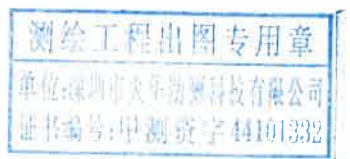 测绘工程出图专用章
单位:深圳市大年勘测科技有限公司
证书编号:甲测资字44101332